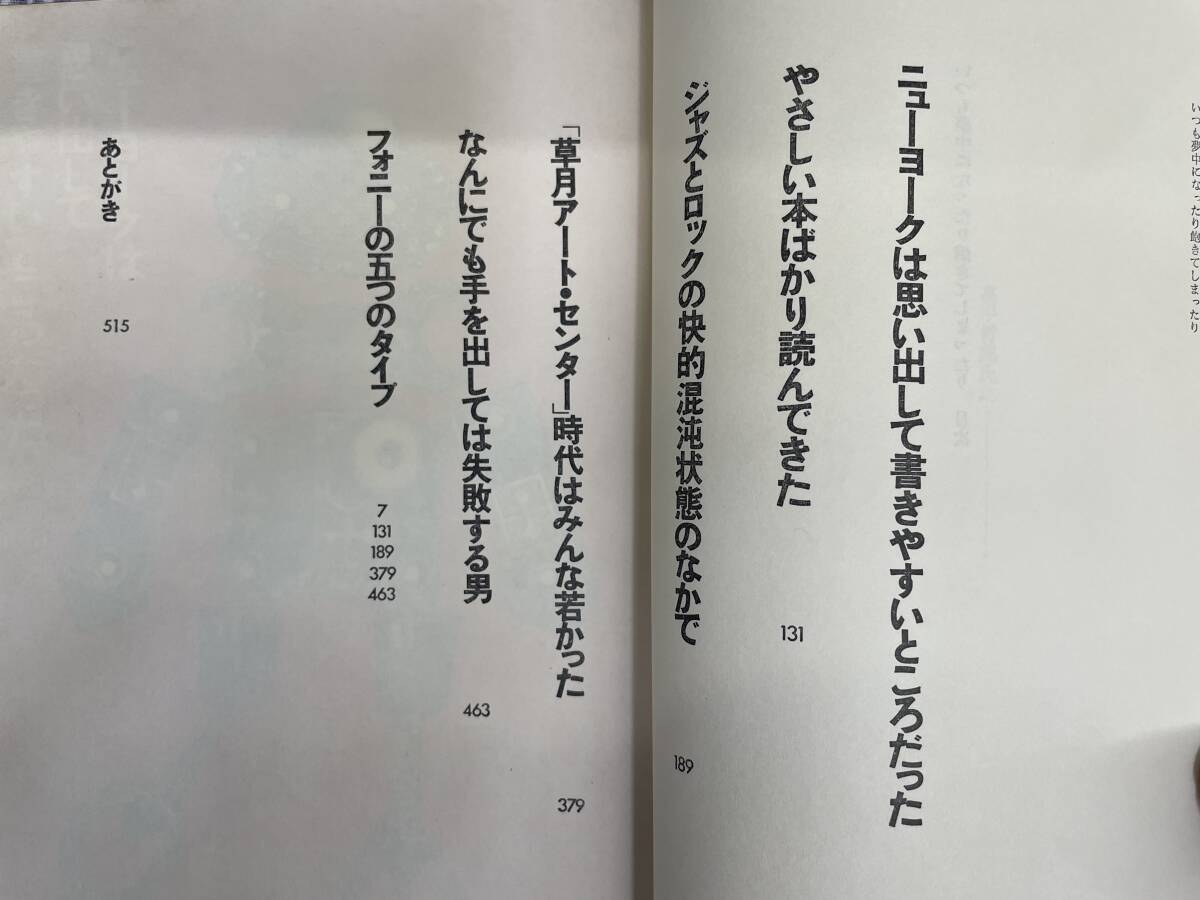 いつも夢中になったり飽きてしまったり
ニューヨークは思い出して書きやすいところだった
やさしい本ばかり読んできた
131
ジャズとロックの快的混沌状態のなかで
189
「草月アート・センター」時代はみんな若かった
379
なんにでも手を出しては失敗する男
463
フォニーの五つのタイプ
7
131
189
379
463
あとがき
515